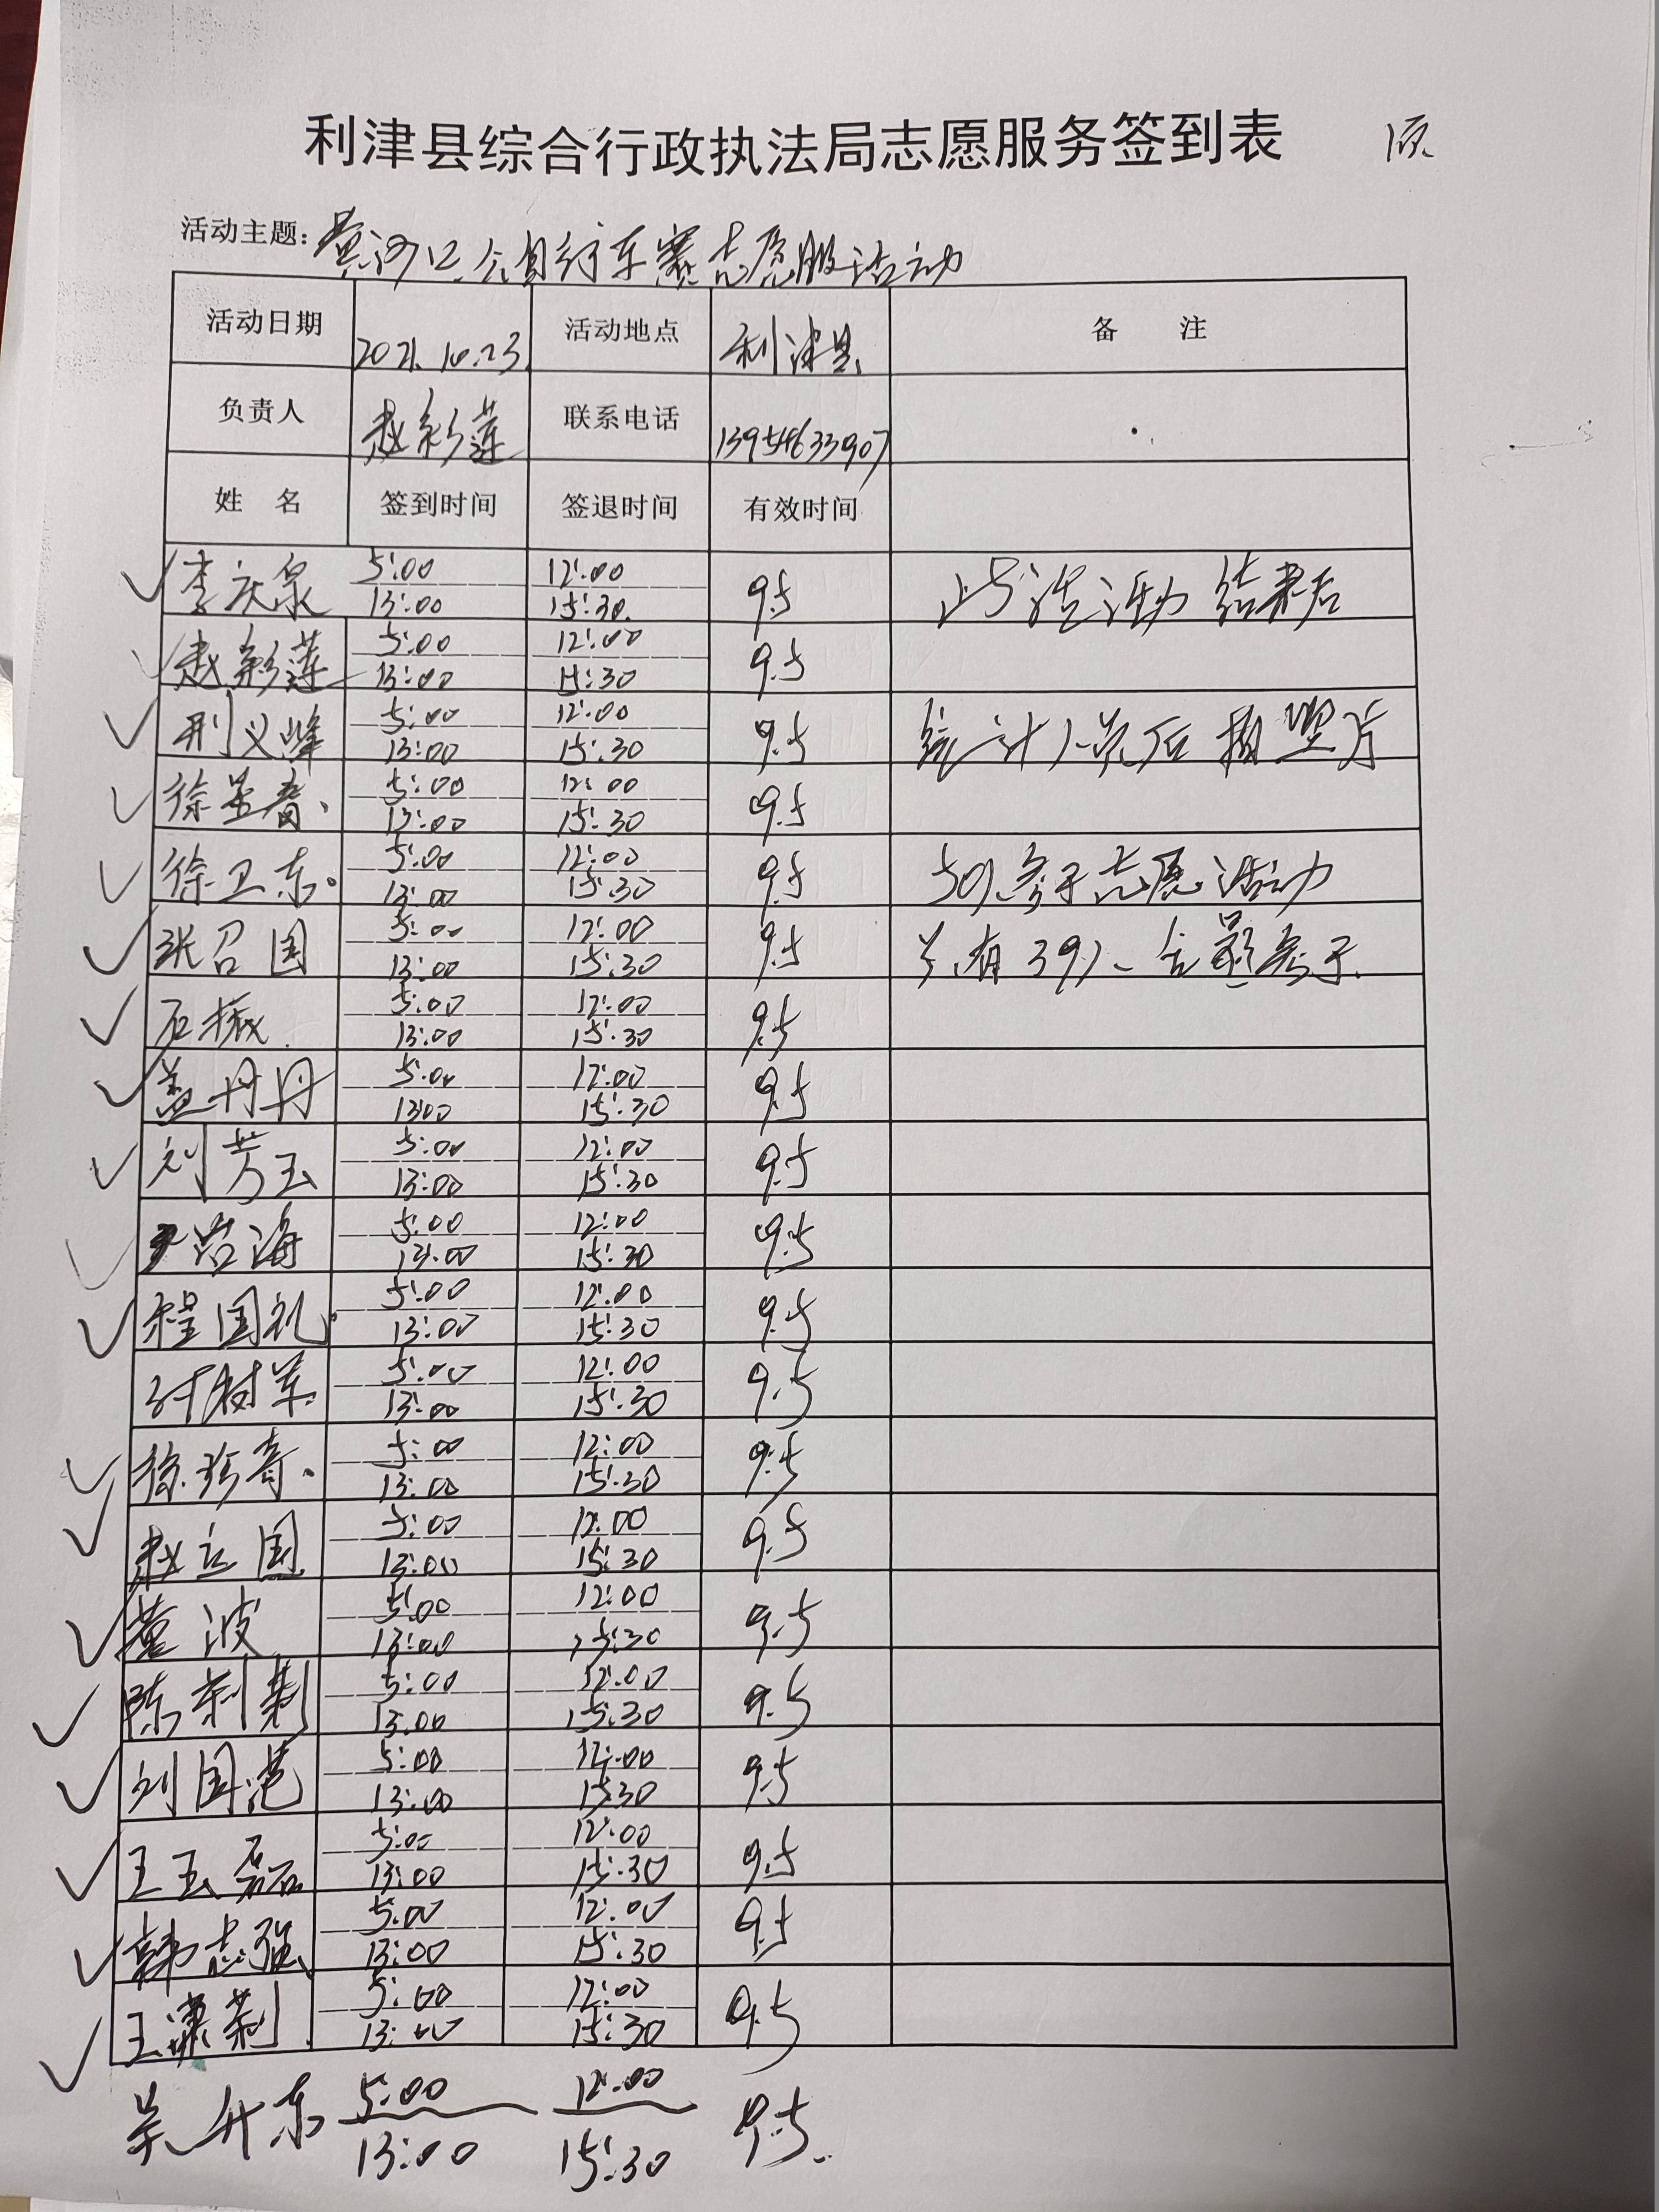 利津县综合行政执法局志愿服务签到表
活动主题：黄河口公自行车赛志愿服活动
活动日期 2021.10.23 活动地点 利津县 备 注
负责人 赵彩莲 联系电话 13954633907
姓 名 签到时间 签退时间 有效时间
李庆泉 5:00 12:00 9.5 此活动结束后
13:00 15:30
赵彩莲 5:00 12:00 9.5
13:00 15:30
邢义峰 5:00 12:00 9.5 统计人员后
13:00 15:30
徐 5:00 12:00 9.5
13:00 15:30
徐卫东 5:00 12:00 9.5 50人参于志愿活动
13:00 15:30
张召国 5:00 12:00 9.5 只有39人合影参于
13:00 15:30
石振 5:00 12:00 9.5
13:00 15:30
盖丹丹 5:00 12:00 9.5
13:00 15:30
刘芳玉 5:00 12:00 9.5
13:00 15:30
岩海 5:00 12:00 9.5
13:00 15:30
程国礼 5:00 12:00 9.5
13:00 15:30
树军 5:00 12:00 9.5
13:00 15:30
徐珍奇 5:00 12:00 9.5
13:00 15:30
赵立国 5:00 12:00 9.5
13:00 15:30
董波 5:00 12:00 9.5
13:00 15:30
陈莉莉 5:00 12:00 9.5
13:00 15:30
刘国范 5:00 12:00 9.5
13:00 15:30
王玉磊 5:00 12:00 9.5
13:00 15:30
韩志强 5:00 12:00 9.5
13:00 15:30
王潇莉 5:00 12:00 9.5
13:00 15:30
吴升东 5:00 12:00 9.5
13:00 15:30